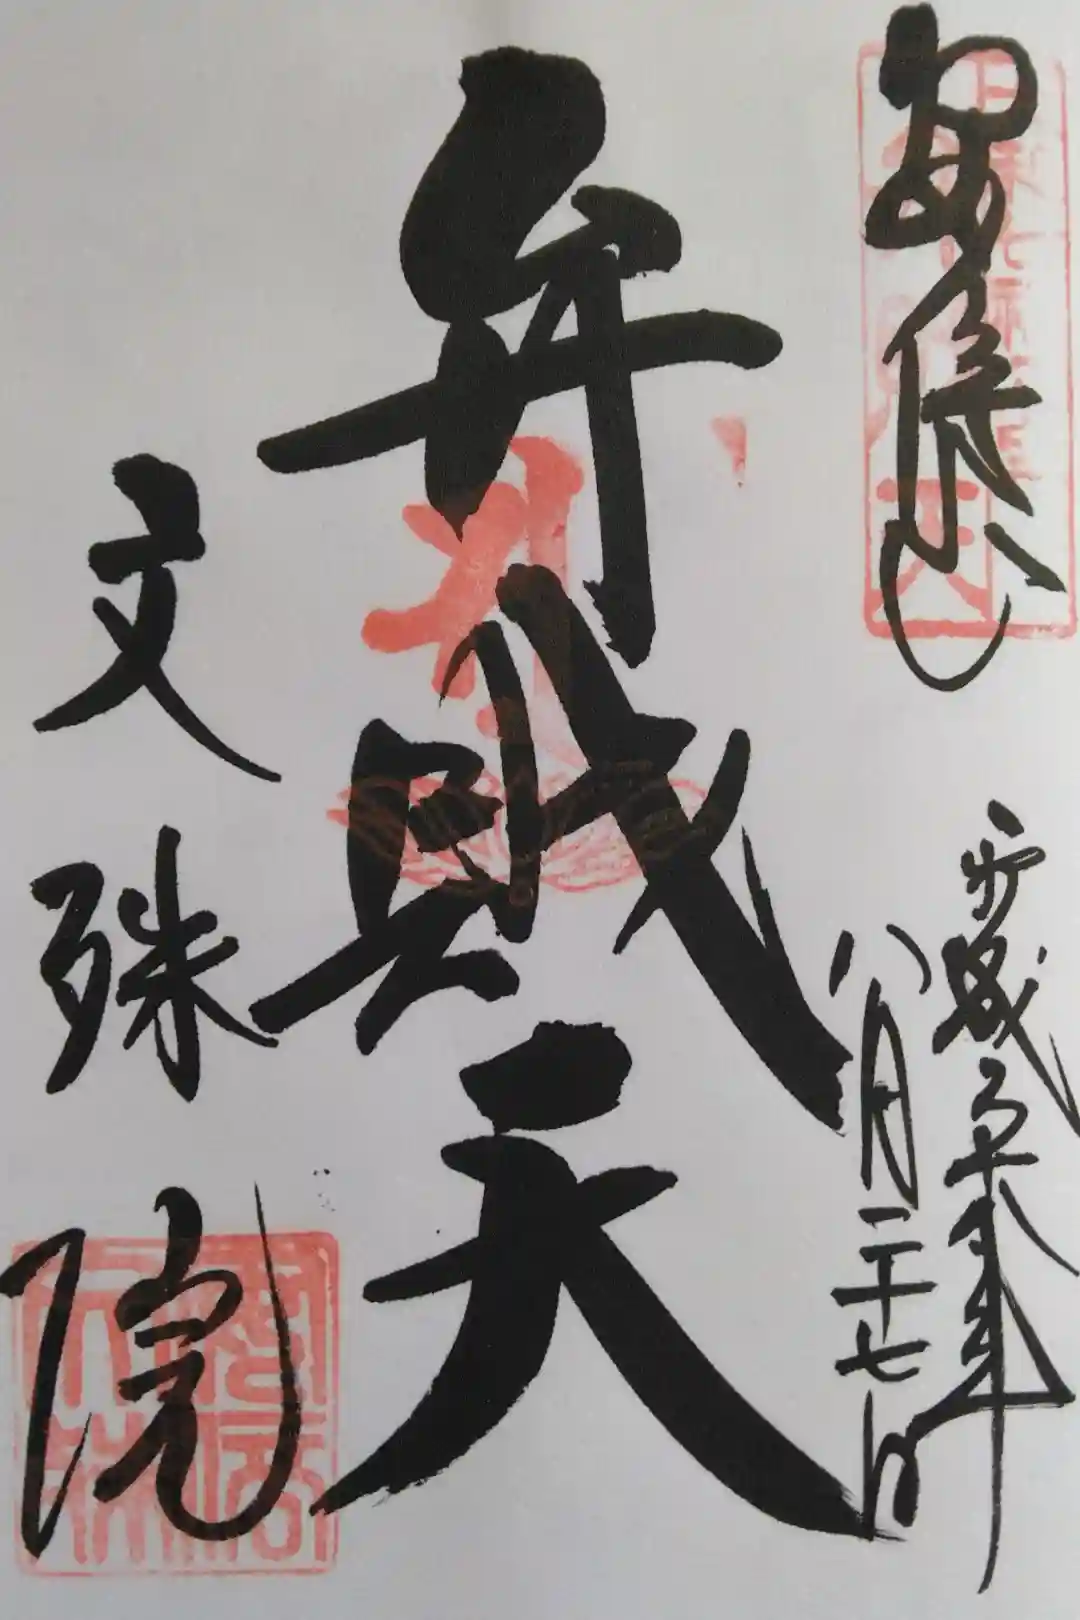 安倍山
弁財天
平成二十八年
八月二十七日
文殊院